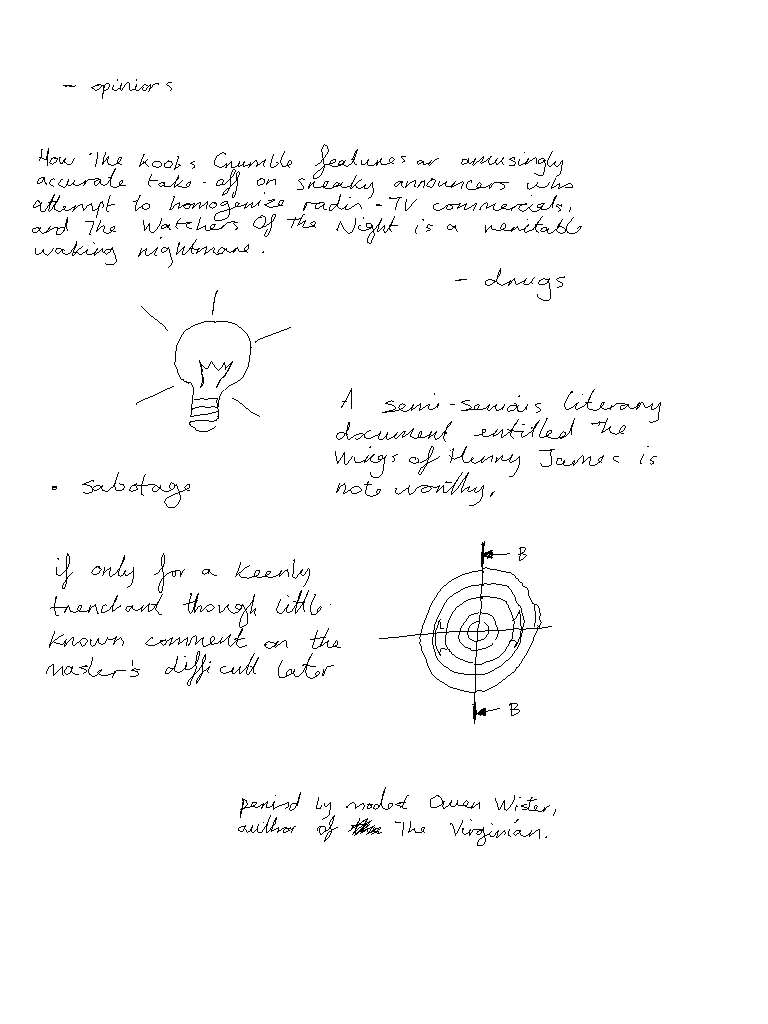 - opinions
How The Kooks Crumble features an amusingly
accurate take-off on sneaky announcers who
attempt to homogenize radio-TV commercials,
and The Watchers Of The Night is a veritable
waking nightmare.
- drugs
A semi-serious literary
document entitled The
Wings of Henry James is
note worthy,
• sabotage
if only for a keenly
trenchant though little
known comment on the
master's difficult later
B
B
period by modest Owen Wister,
author of The Virginian.